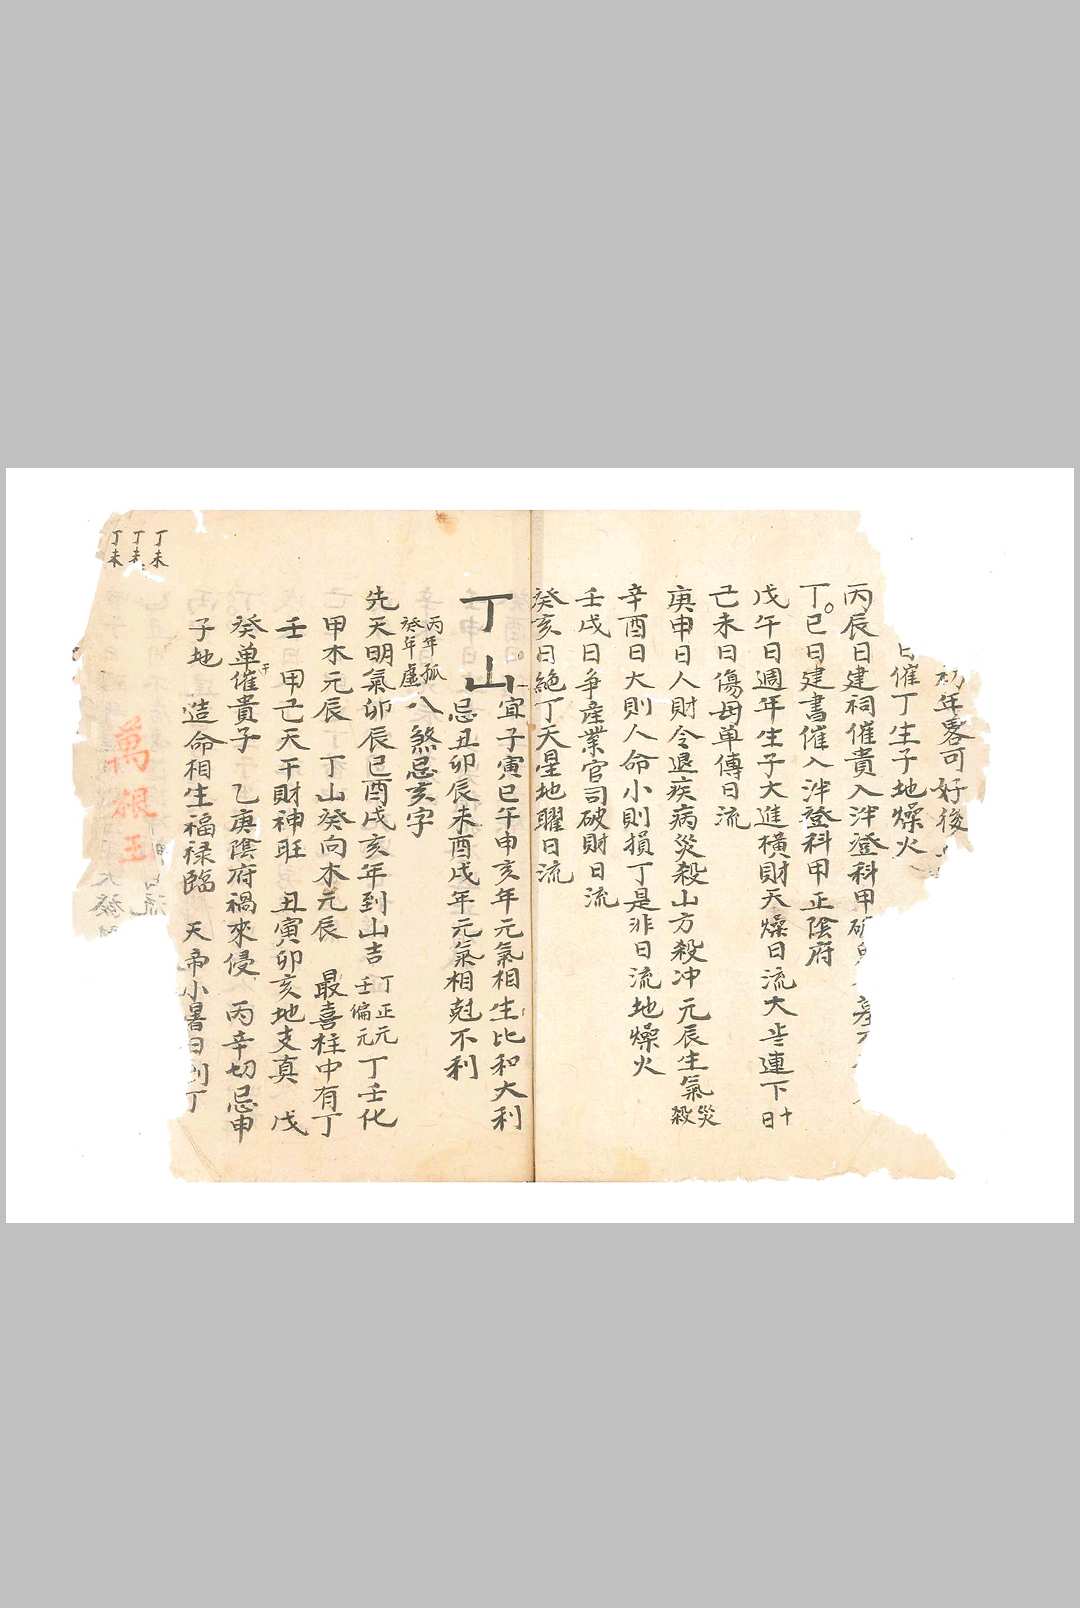 初年畧可好後
日催丁生子地燥火
丙辰日建祠催貴入泮登科甲
丁巳日建書催入泮登科甲正陰府
戊午日週年生子大進橫財天燥日流大 連下十日
己未日傷母单傳日流
庚申日人財令退疾病災殺山方殺冲元辰生氣災殺
辛酉日大則人命小則損丁是非日流地燥火
壬戌日争産業官司破財日流
癸亥日絶丁天星地曜日流
丁山
宜子寅巳午申亥年元氣相生比和大利
忌丑卯辰未酉戌年元氣相尅不利
丙年孤
癸年虛
八煞忌亥字
先天明氣卯辰巳酉戌亥年到山吉丁正元壬偏元丁壬化
甲木元辰 丁山癸向木元辰 最喜柱中有丁
壬 甲己天干財神旺 丑寅卯亥地支真 戊
癸单催貴子 乙庚陰府禍來侵 丙辛切忌申
子地 造命相生福禄臨 天帝小暑日到丁
丁未
丁未
丁未
萬根玉